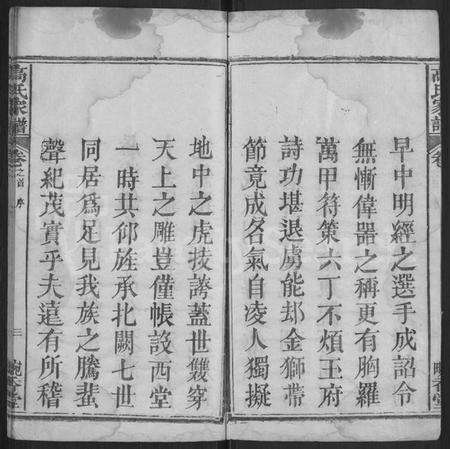 早中明經之選手成詔令
無慚偉器之稱更有胸羅
萬甲符策六丁不煩玉府
詩功堪退虜能却金獅帶
節竟成名氣自凌人獨擬
高氏家譜
卷
晼香堂
地中之虎技誇蓋世雙穿
天上之雕豈僅帳設西堂
一時共仰旌承北闕七世
同居爲足見我族之騰蜚
聲紀茂實乎夫遠有所稽
高氏家譜
卷之首 序
三
晼香堂